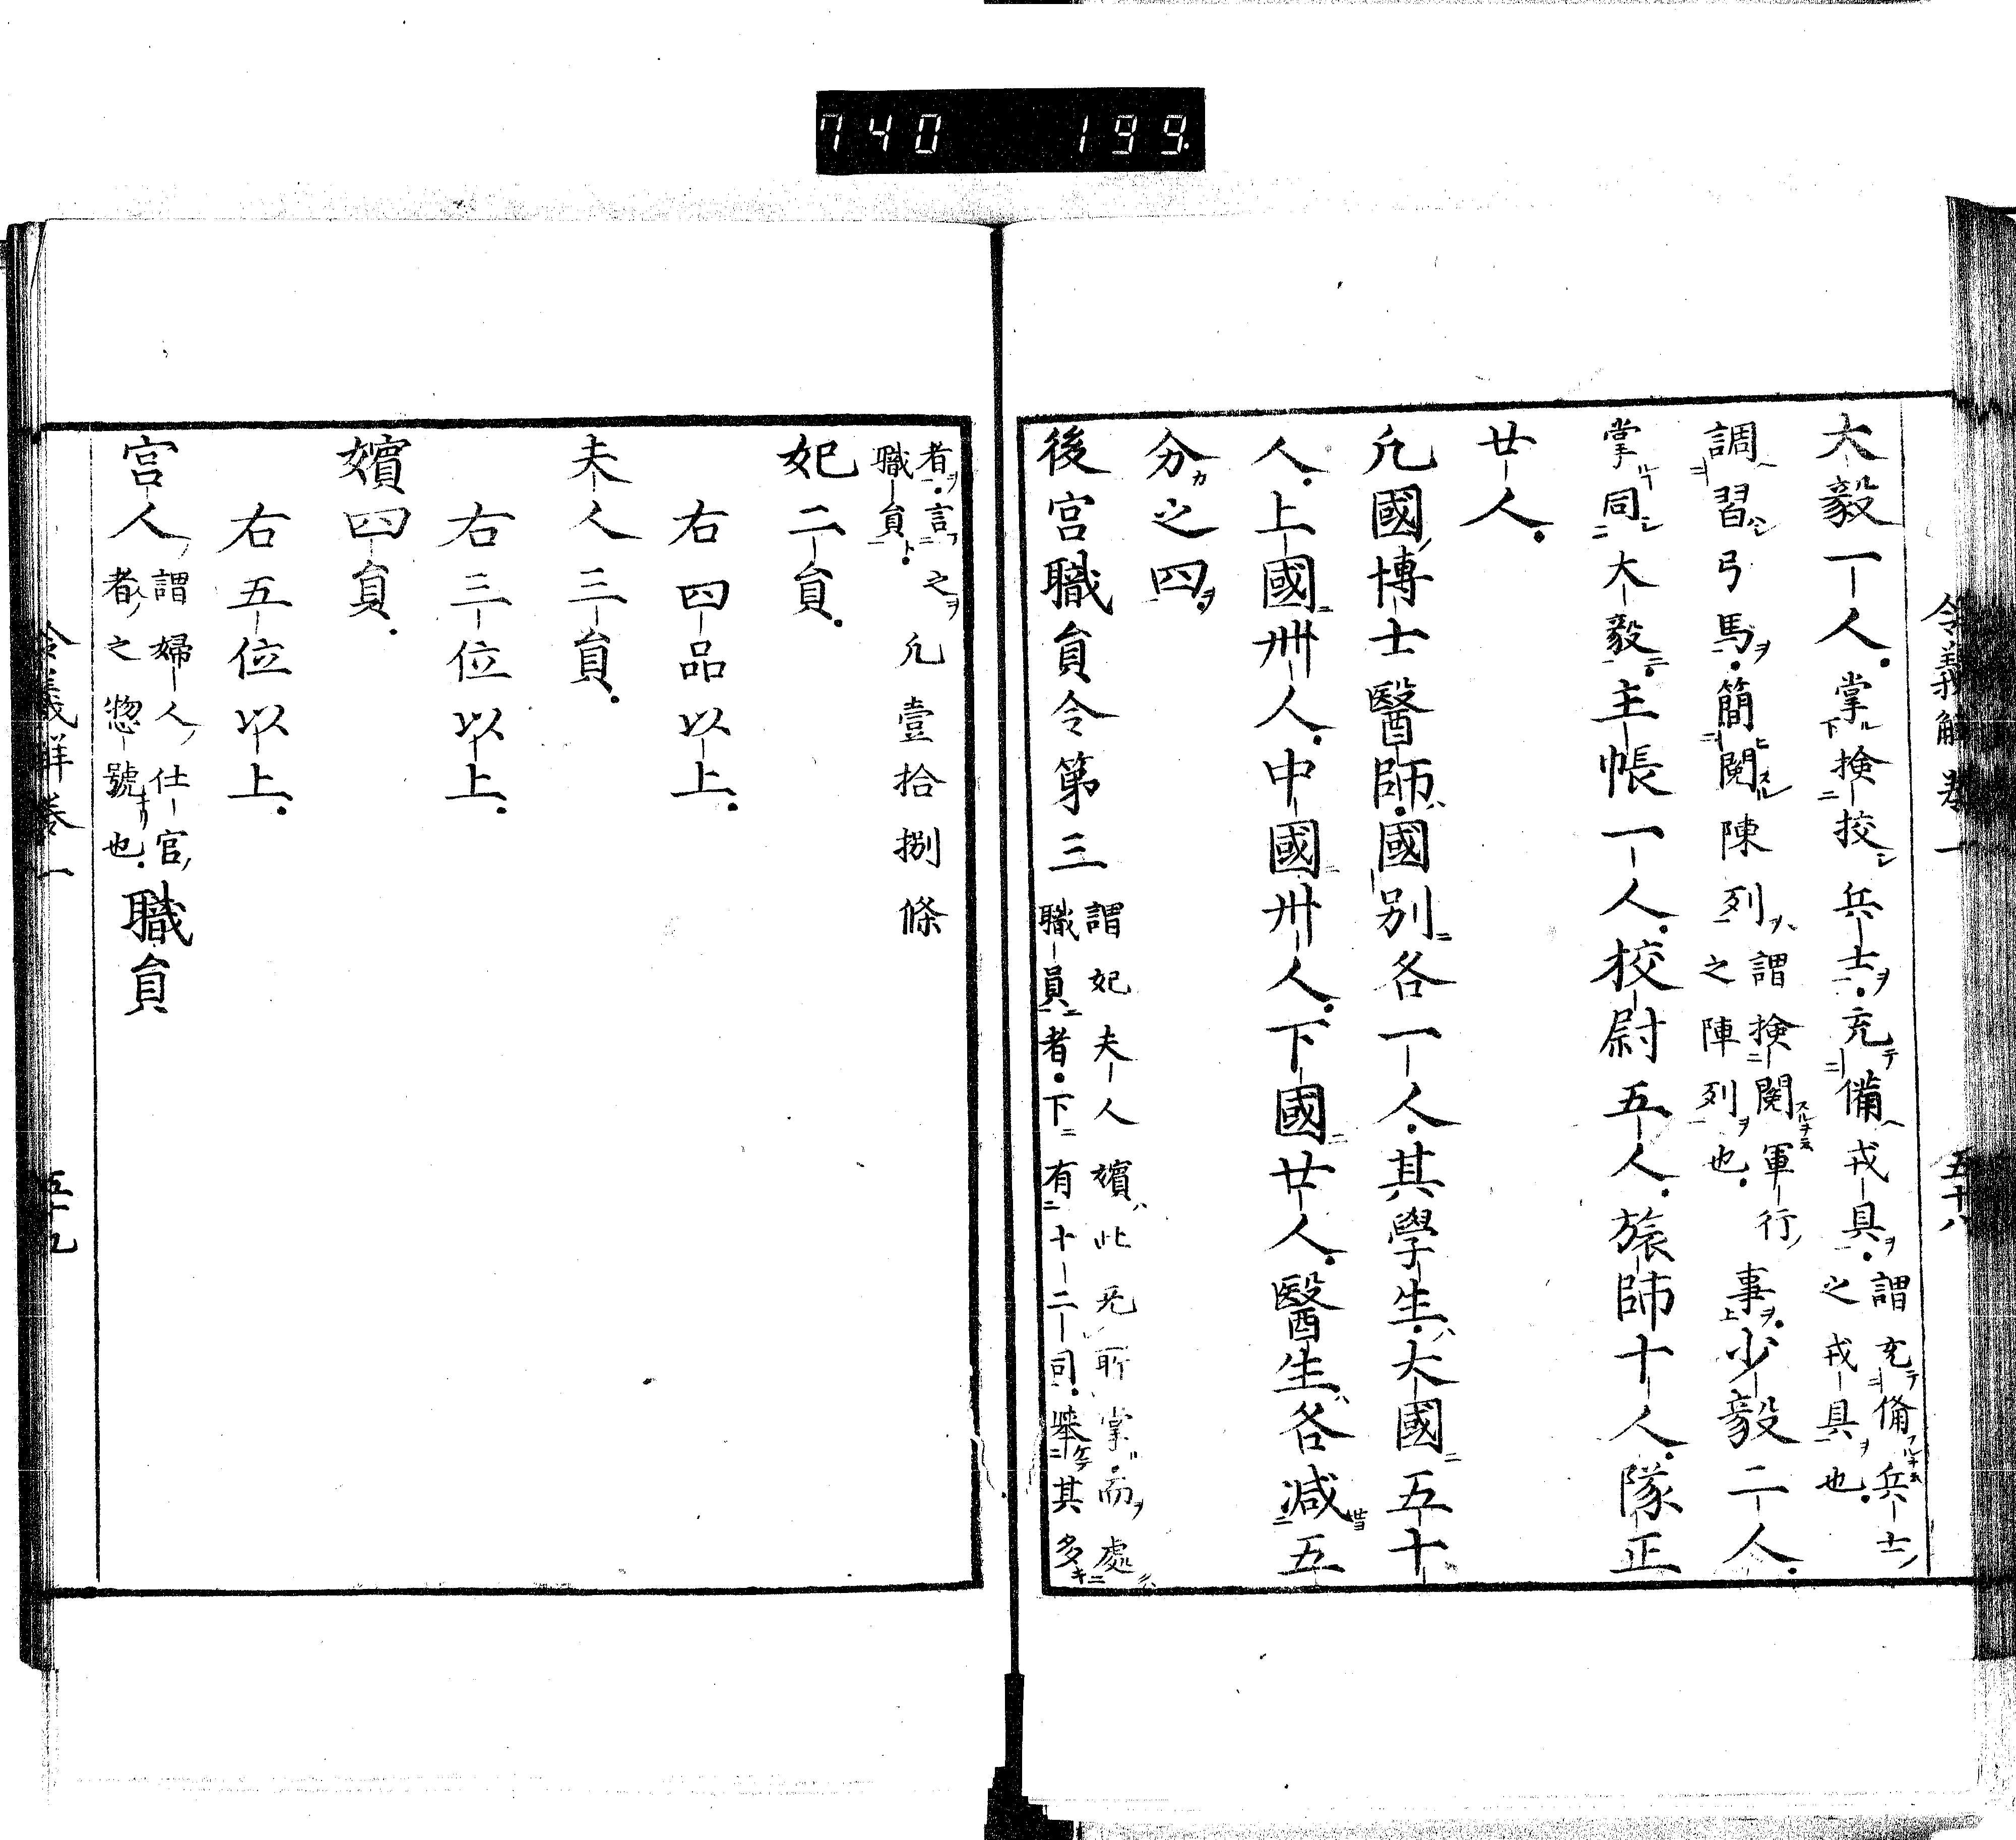 740 199
令義解卷一 五十八
大毅一人。掌撿挍兵士。充備戎具。謂充備兵士
之戎具也。
調習弓馬。簡閱陳列謂撿閱軍行
之陣列也。事。少毅二人。
掌同大毅。主帳一人。校尉五人。旅師十人。隊正
廿人。
凡國博士醫師。國別各一人。其學生。大國五十
人。上國卌人。中國卅人。下國廿人。醫生各減五
分之四。
後宮職員令第三謂妃夫人嬪此无所掌。而處
職員者。下有十二司。舉其多
者。言之
職員。凡壹拾捌條
妃二員。
右四品以上。
夫人三員。
右三位以上。
嬪四員。
右五位以上。
宮人謂婦人仕官
者之惣號也。職員
令義解卷一 五十九